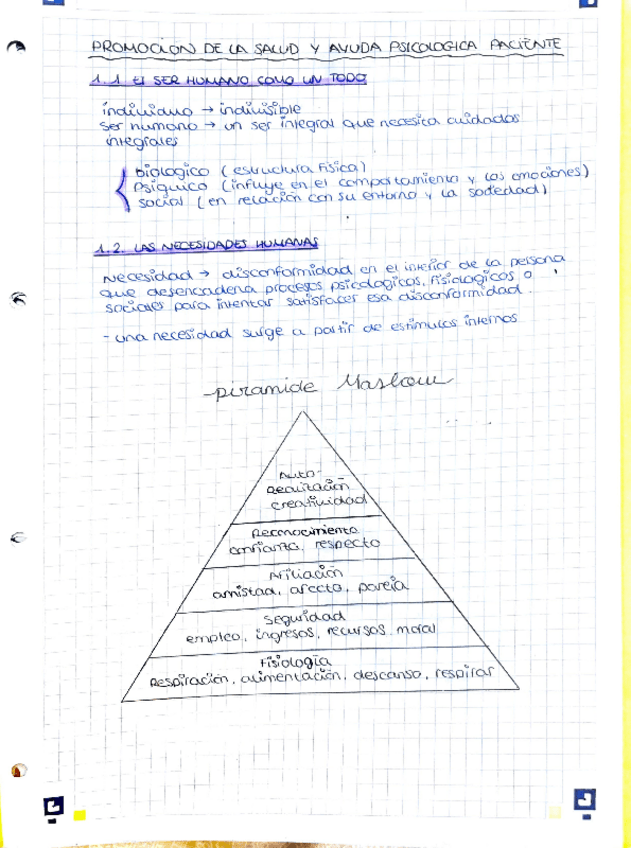 PROMOCION DE LA SALUD Y AYUDA PSICOLOGICA PACIENTE
1.1 El SER HUMANO COMO UN TODO
individuo → indivisible
ser humano → un ser integral que necesita cuidados
integrales
Biologico (estructura fisica)
Psiquico (influye en el comportamiento y las emociones)
social (en relación con su entorno y la sociedad)
1.2. LAS NECESIDADES HUMANAS
Necesidad → disconformidad en el interior de la persona
que desencadena procesos psicologicos, fisiologicos o
sociales para intentar satisfacer esa disconformidad.
- una necesidad surge a partir de estimulos internos
-piramide Maslow
Auto-
Realización
creatividad
Reconocimiento
confianza, respecto
Afiliación
amistad, afecto, pareja
Seguridad
empleo, ingresos, recursos, moral
Fisiología
Respiración, alimentación, descanso, respirar